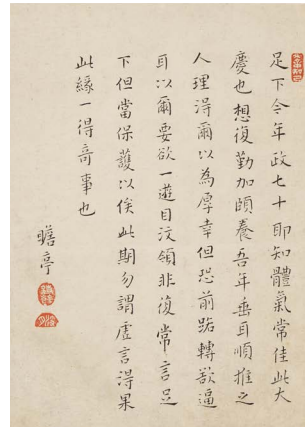 足下今年政七十耶知體氣常佳此大
慶也想復勤加頤養吾年垂耳順推之
人理得爾以為厚幸但恐前路轉欲逼
耳以爾要欲一遊目汶領非復常言足
下但當保護以俟此期勿謂虛言得果
此緣一得奇事也
瞻亭